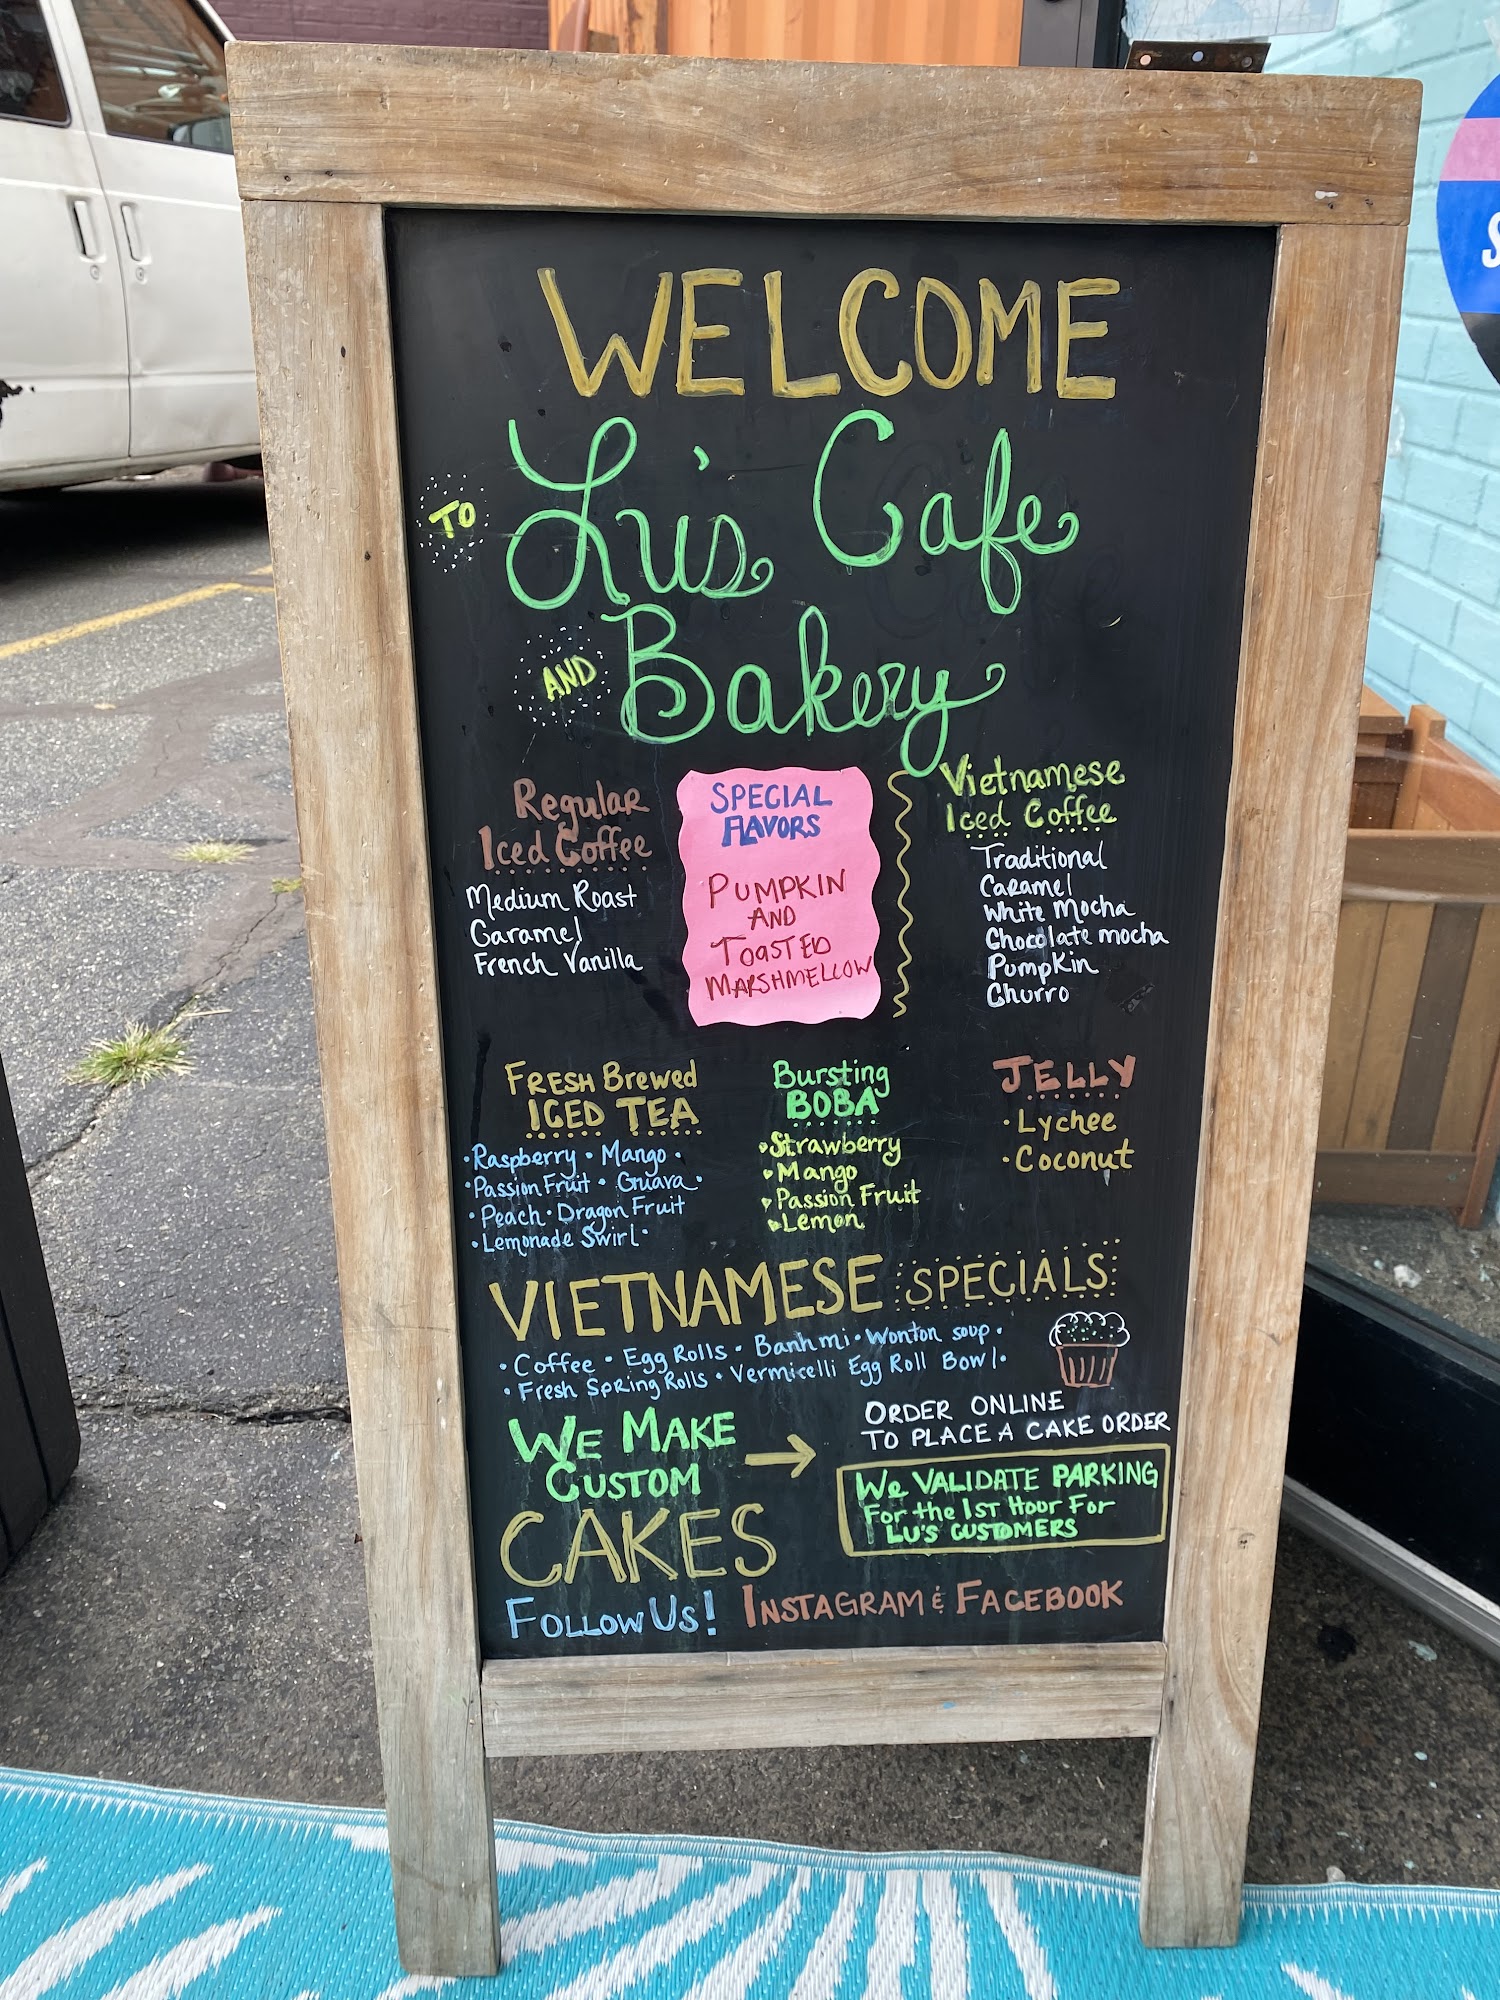 WELCOME
TO Lu's Cafe
AND Bakery
Regular
Iced Coffee
Medium Roast
Caramel
French Vanilla
SPECIAL
FLAVORS
PUMPKIN
AND
TOASTED
MARSHMELLOW
Vietnamese
Iced Coffee
Traditional
Caramel
White Mocha
Chocolate mocha
Pumpkin
Churro
FRESH Brewed
ICED TEA
• Raspberry • Mango •
• Passion Fruit • Guava •
• Peach • Dragon Fruit
• Lemonade Swirl •
Bursting
BOBA
Strawberry
Mango
Passion Fruit
Lemon
JELLY
• Lychee
• Coconut
VIETNAMESE SPECIALS
• Coffee • Egg Rolls • Banh mi • Wonton soup •
• Fresh Spring Rolls • Vermicelli Egg Roll Bowl •
WE MAKE
CUSTOM
CAKES
ORDER ONLINE
TO PLACE A CAKE ORDER
We VALIDATE PARKING
For the 1ST Hour For
LU'S CUSTOMERS
FOLLOW US! INSTAGRAM & FACEBOOK
S